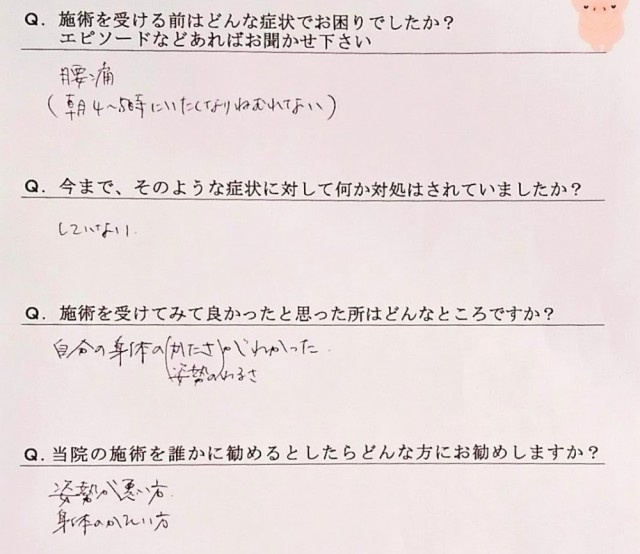 Q. 施術を受ける前はどんな症状でお困りでしたか？
エピソードなどあればお聞かせ下さい
腰痛
（朝4〜5時にいたくなりねむれてない）
Q. 今まで、そのような症状に対して何か対処はされていましたか？
していない.
Q. 施術を受けてみて良かったと思った所はどんなところですか？
自分の身体の(かたさ)がわかった.
姿勢のわるさ
Q. 当院の施術を誰かに勧めるとしたらどんな方にお勧めしますか？
姿勢が悪い方.
身体のかたい方